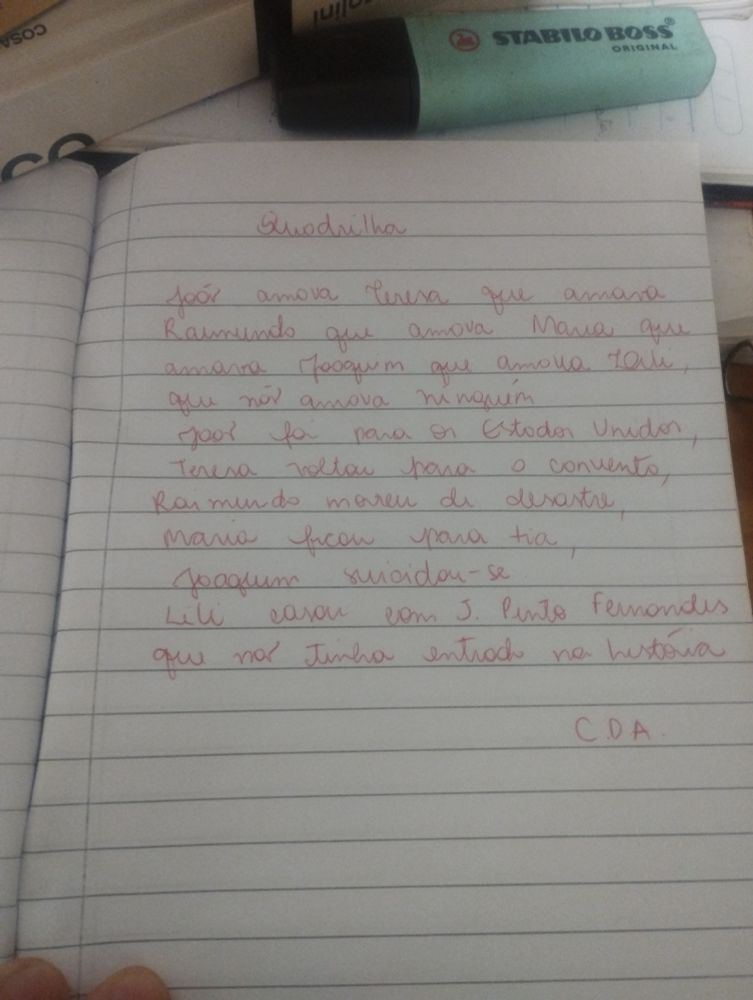 COSA
olini
CO
STABILO BOSS®
ORIGINAL
Quadrilha
João amava Teresa que amava
Raimundo que amava Maria que
amava Joaquim que amava Lili,
que não amava ninguém
João foi para os Estados Unidos,
Teresa voltou para o convento,
Raimundo morreu de desastre,
Maria ficou para tia,
Joaquim suicidou-se
Lili casou com J. Pinto Fernandes
que não tinha entrado na história
C.D.A.